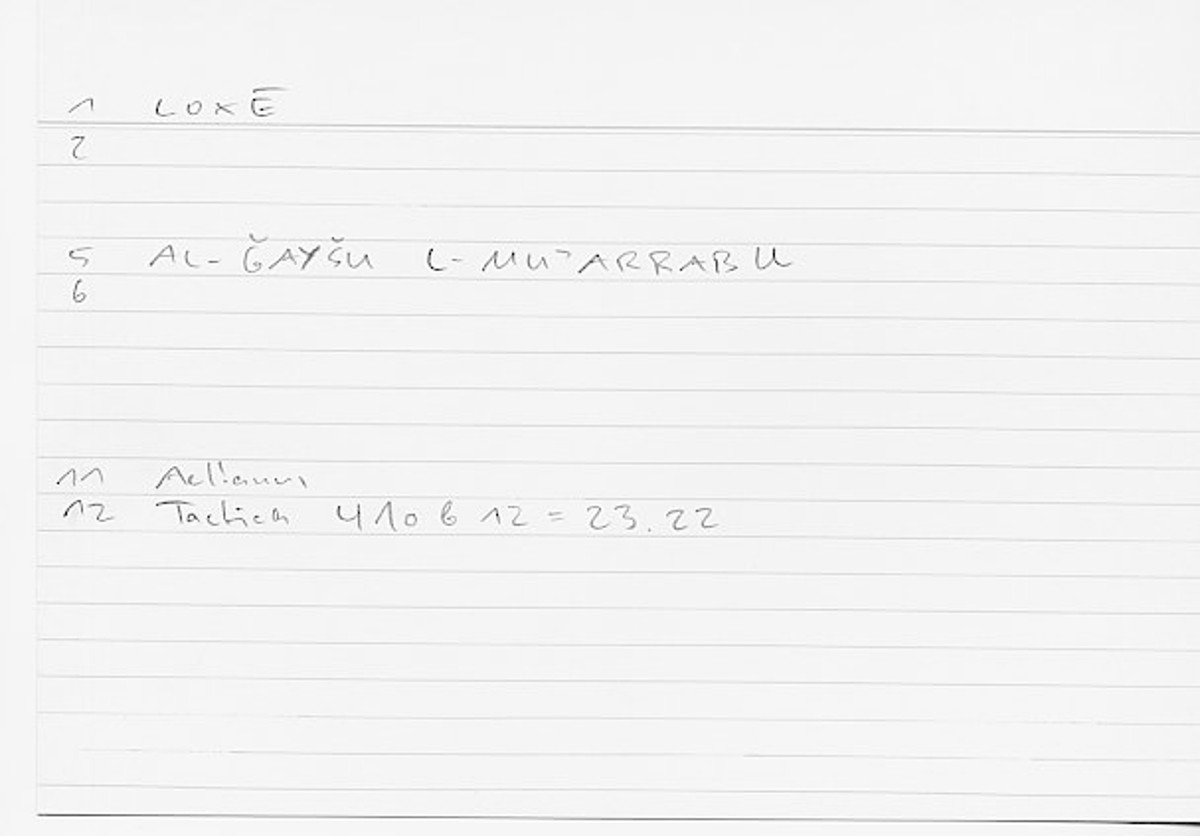 1 LOXĒ
2
5 AL-ǦAYŠU L-MUʾARRABU
6
11 Aelianus
12 Tactica 410 6 12 = 23.22